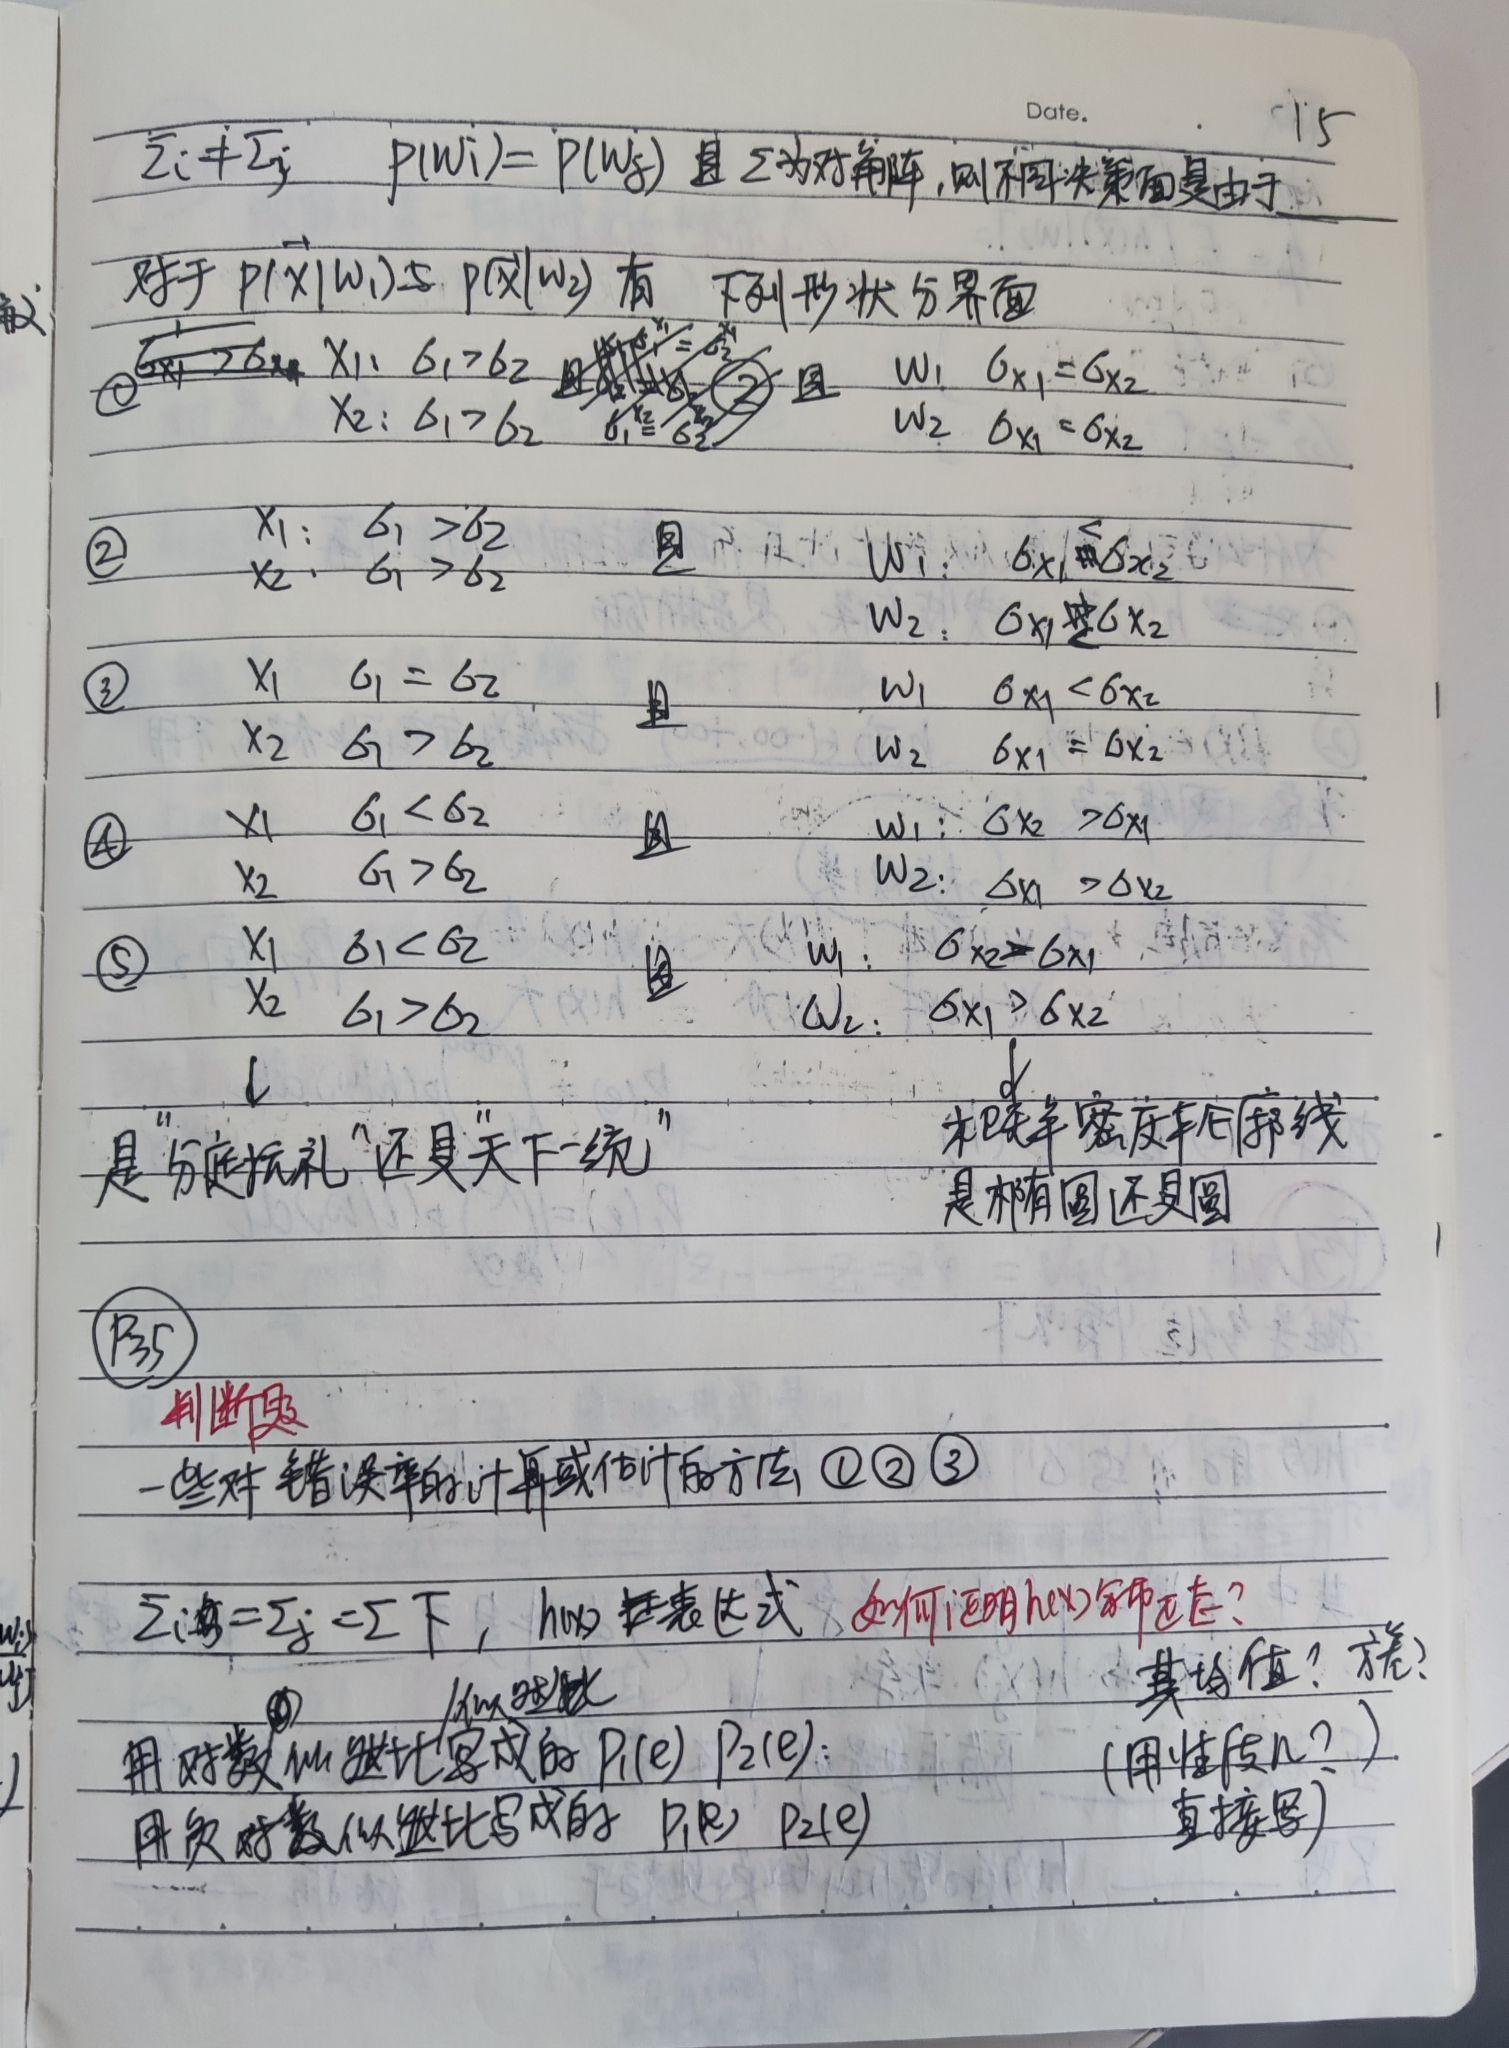 Date. 15
Σi≠Σj P(Wi)=P(Wj) 且Σ为对角阵,则不同决策面是由于
对于P(x|W1)与P(x|W2)有 下列形状分界面
① X1: σ1>σ2 且 W1 σx1=σx2
X2: σ1>σ2 W2 σx1=σx2
② X1: σ1>σ2 且 W1: σx1<σx2
X2: σ1>σ2 W2: σx1 σx2
③ X1 σ1=σ2 且 W1 σx1<σx2
X2 σ1>σ2 W2 σx1=σx2
④ X1 σ1<σ2 且 W1: σx2>σx1
X2 σ1>σ2 W2: σx1>σx2
⑤ X1 σ1<σ2 且 W1: σx2>σx1
X2 σ1>σ2 W2: σx1>σx2
↓ ↓
是"分庭抗礼"还是"天下一统" 概率密度轮廓线
是椭圆还是圆
P35
判断题
一些对错误率的计算或估计的方法①②③
Σi=Σj=Σ下, h(x) 表达式 如何证明h(x)分布正态?
其均值? 方差?
似然比
用对数似然比写成的 P1(e) P2(e): (用性质n?)
用负对数似然比写成的 P1(e) P2(e) 直接写)